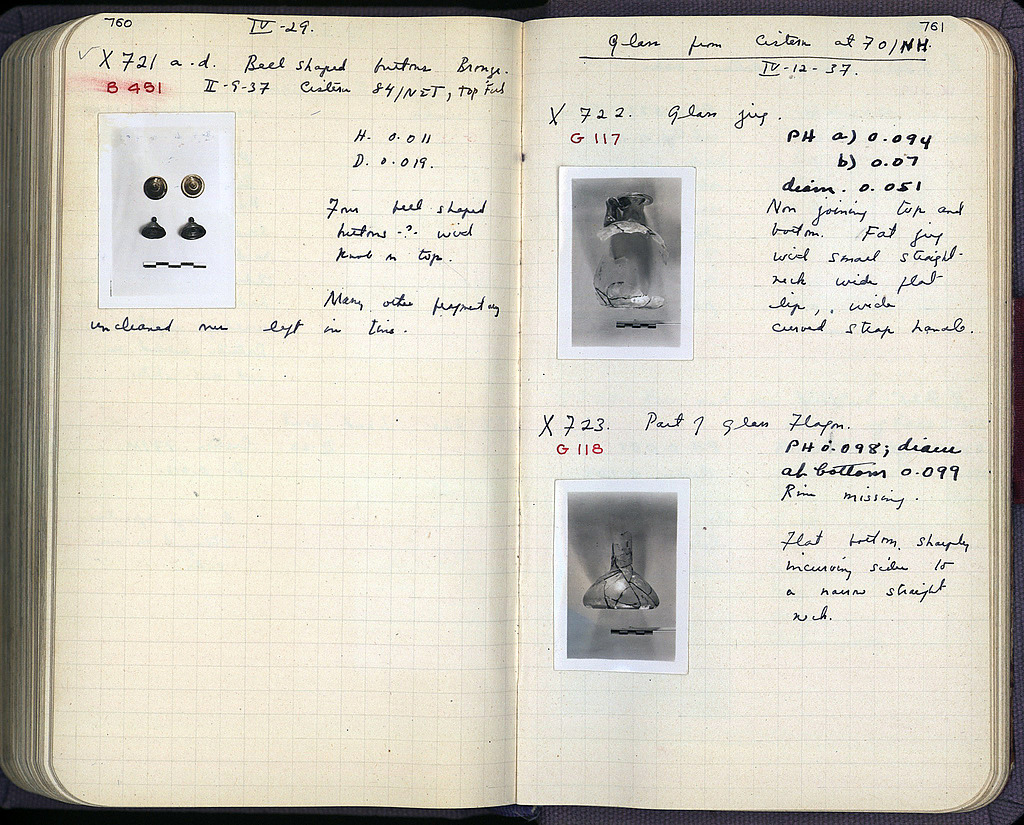 760
IV-29.
X 721 a-d. Bell shaped buttons Bronze.
B 491 II-9-37 Cistern 84/NET, top Fill
H. 0.011
D. 0.019.
Four bell shaped
buttons -?- with
knob on top.
Many other fragmentary
uncleaned ones left in tins.
761
Glass from Cistern at 70/NH.
IV-12-37.
X 722. Glass jug.
G 117
PH a) 0.094
b) 0.07
diam. 0.051
Non joining top and
bottom. Fat jug
with small straight
neck wide flat
lip, wide
curved strap handle.
X 723. Part of glass Flagon.
G 118
PH 0.098; diam
at bottom 0.099
Rim missing.
Flat bottom, sharply
incurving sides to
a narrow straight
neck.